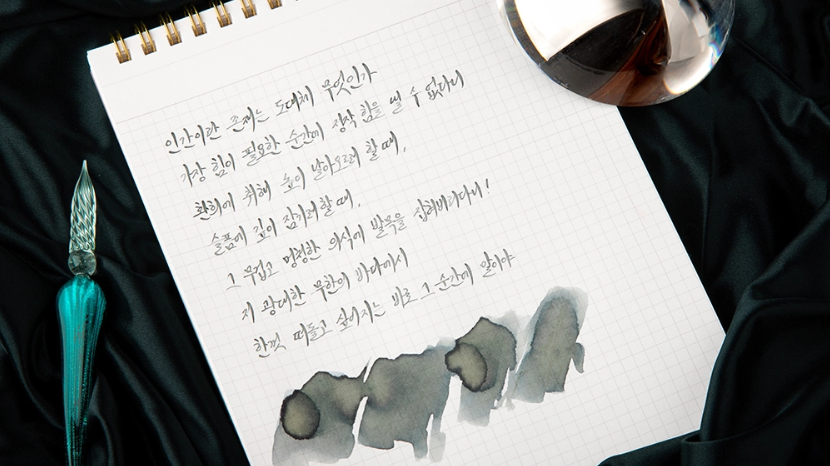 인간이란 존재는 도대체 무엇인가
가장 힘이 필요한 순간에 정작 힘을 낼 수 없다니
환희에 취해 높이 날아오르려 할 때,
슬픔에 깊이 잠기려 할 때,
그 무겁고 멍청한 의식에 발목을 잡혀버리다니!
저 광대한 무한의 바다에서
한껏 떠돌고 싶어지는 바로 그 순간에 말이야